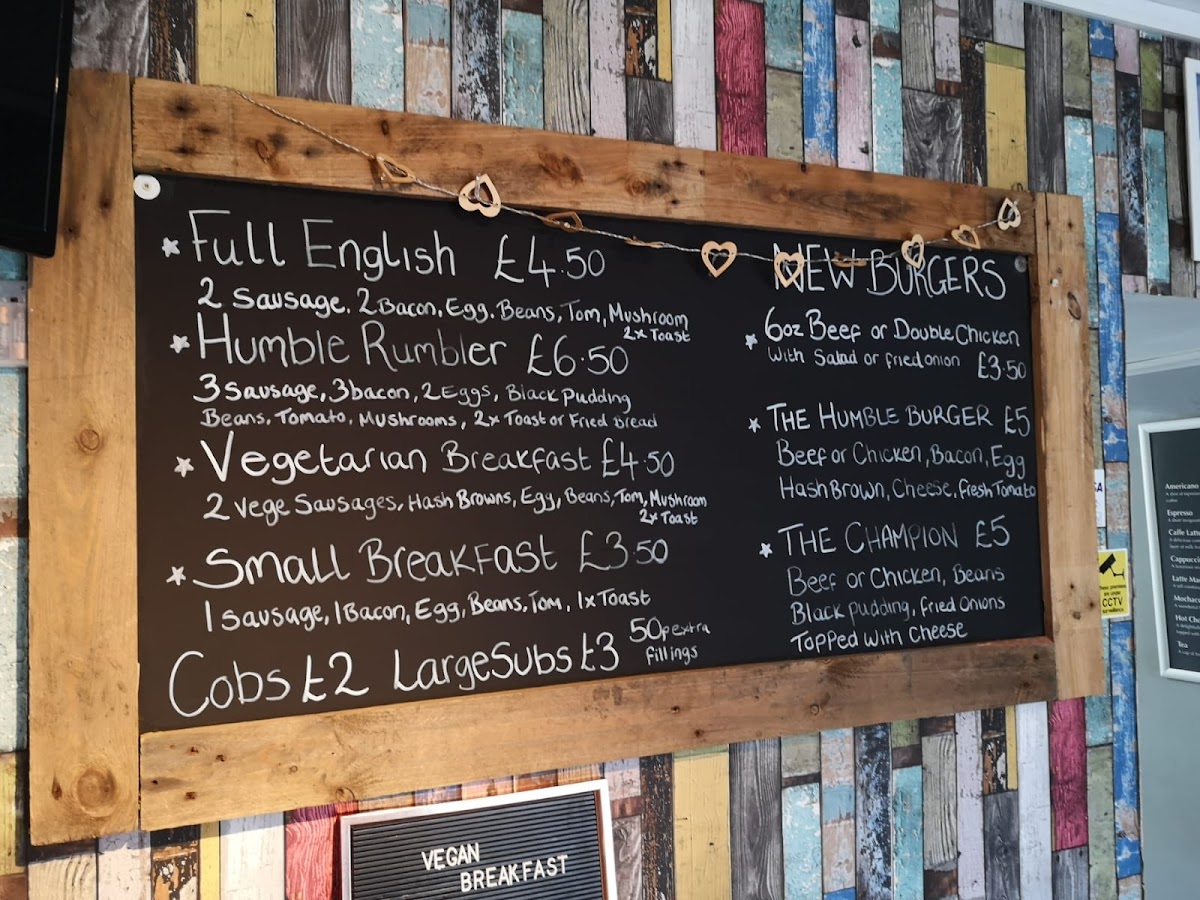 Full English £4.50
2 Sausage, 2 Bacon, Egg, Beans, Tom, Mushroom
2x Toast
Humble Rumbler £6.50
3 Sausage, 3 bacon, 2 Eggs, Black Pudding
Beans, Tomato, Mushrooms, 2x Toast or Fried Bread
Vegetarian Breakfast £4.50
2 Vege Sausages, Hash Browns, Egg, Beans, Tom, Mushroom
2x Toast
Small Breakfast £3.50
1 Sausage, 1 Bacon, Egg, Beans, Tom, 1x Toast
Cobs £2 Large Subs £3 50p extra
fillings
NEW BURGERS
6oz Beef or Double Chicken
with Salad or fried onion £3.50
THE HUMBLE BURGER £5
Beef or Chicken, Bacon, Egg
Hash Brown, Cheese, Fresh Tomato
THE CHAMPION £5
Beef or Chicken, Beans
Black pudding, fried Onions
Topped with Cheese
VEGAN
BREAKFAST
CCTV
Americano
Espresso
Caffe Latte
Cappuccin
Latte Ma
Mocha
Hot Cho
Tea